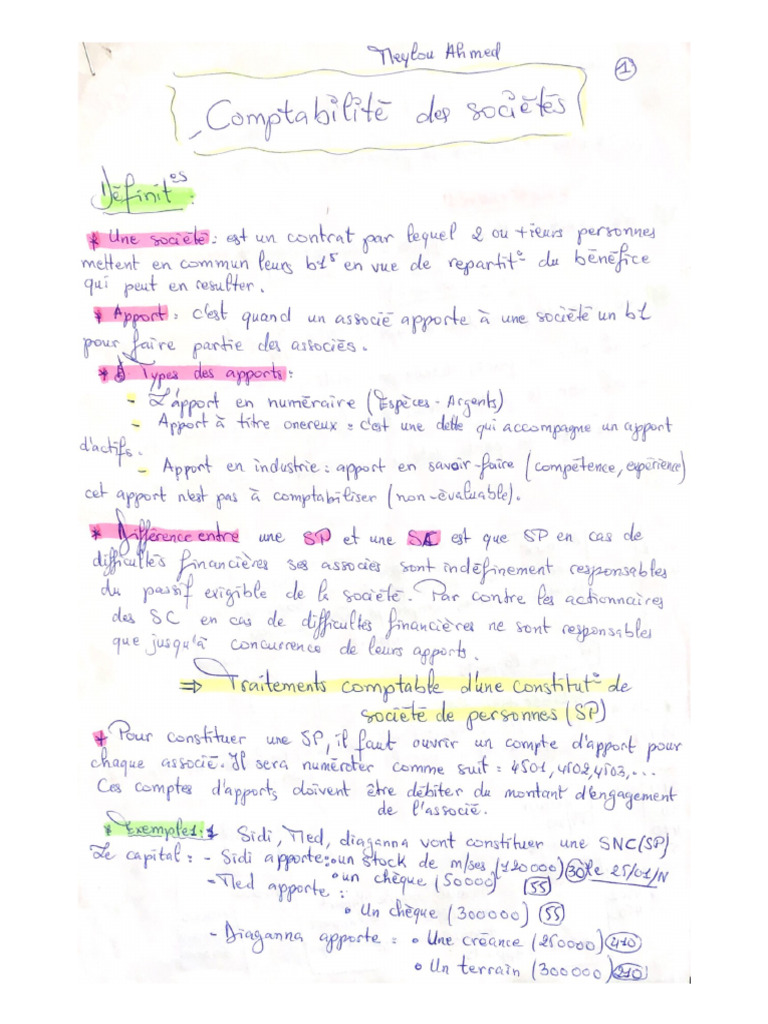 Meylou Ahmed
1
Comptabilité des sociétés
Définit°s :
* Une société : est un contrat par lequel 2 ou +ieurs personnes
mettent en commun leurs b1s en vue de repartit° du bénéfice
qui peut en resulter.
* Apport : c'est quand un associé apporte à une société un b1
pour faire partie des associés.
* Types des apports :
- L'apport en numéraire (Espèces - Argents)
- Apport à titre onereux : c'est une dette qui accompagne un apport
d'actifs.
- Apport en industrie : apport en savoir-faire (compétence, expérience)
cet apport n'est pas à comptabiliser (non-évaluable).
* Différence entre une SP et une SC est que SP en cas de
difficultés financières ses associés sont indéfinement responsables
du passif exigible de la société. Par contre les actionnaires
des SC en cas de difficultés financières ne sont responsables
que jusqu'à concurrence de leurs apports.
⇒ Traitements comptable d'une constitut° de
société de personnes (SP)
* Pour constituer une SP, il faut ouvrir un compte d'apport pour
chaque associé. Il sera numéroter comme suit : 4501, 4502, 4503, ...
Ces comptes d'apports doivent être débiter du montant d'engagement
de l'associé.
* Exemple 1 : Sidi, Med, diaganna vont constituer une SNC (SP)
Le capital : - Sidi apporte : • un stock de m/ses (120000) 30 le 25/01/N
• un chèque (50000) 55
- Med apporte :
• Un chèque (300000) 55
- Diaganna apporte : • Une créance (250000) 410
• Un terrain (300000) 210